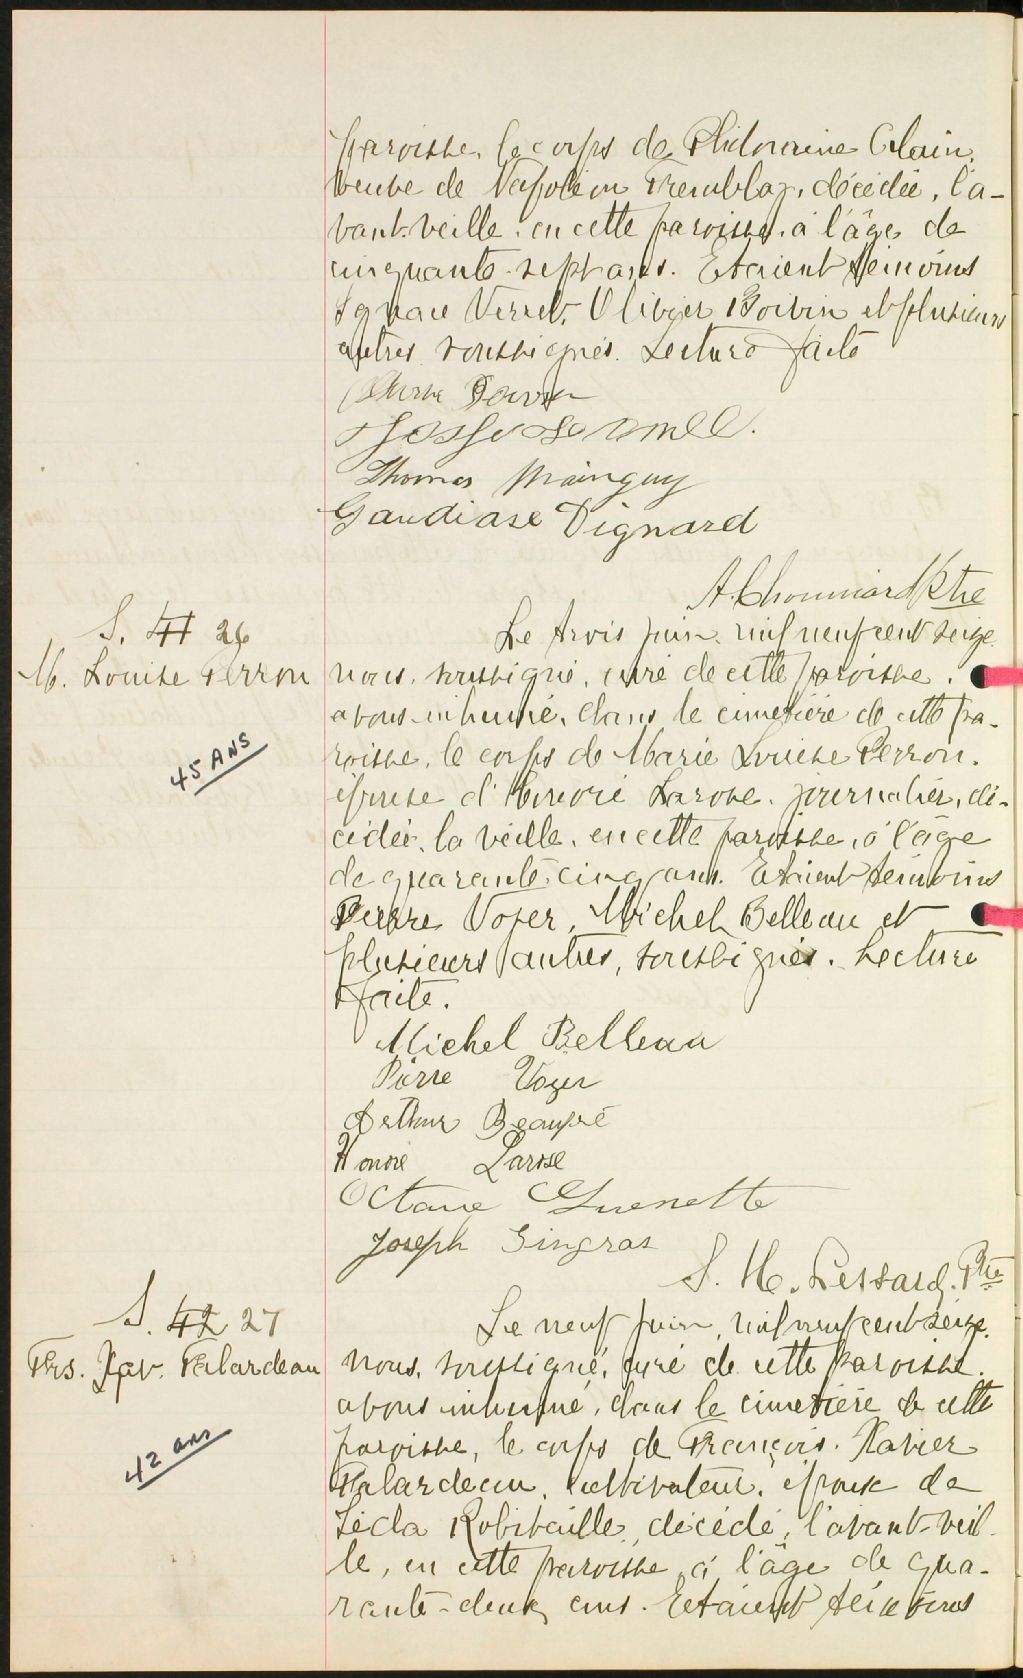 paroisse, le corps de Philomène Alain,
veuve de Napoléon Tremblay, décédée, l'a-
vant-veille, en cette paroisse, à l'âge de
cinquante-sept ans. Etaient témoins
Ignace Verret, Olivier Boivin et plusieurs
autres soussignés. Lecture faite
Thomas Mainguy
Gaudiase Dignard
A. Chouinard Ptre
S. 41 26
M. Louise Perron
45 ANS
Le trois juin, mil neuf cent seize
nous, soussigné, curé de cette paroisse,
avons inhumé, dans le cimetière de cette pa-
roisse, le corps de Marie Louise Perron,
épouse d'Honoré Larose, journalier, dé-
cédée, la veille, en cette paroisse, à l'âge
de quarante-cinq ans. Etaient témoins
Pierre Voyer, Michel Belleau et
plusieurs autres, soussignés. Lecture
faite.
Michel Belleau
Pierre Voyer
Arthur Beaupré
Honoré Larose
Octave Guenette
Joseph Gingras
S. H. Lessard, Ptre
S. 42 27
Frs. Xav. Falardeau
42 ans
Le neuf juin, mil neuf cent seize,
nous, soussigné, curé de cette paroisse,
avons inhumé, dans le cimetière de cette
paroisse, le corps de François-Xavier
Falardeau, cultivateur, époux de
Léda Robitaille, décédé, l'avant-veil-
le, en cette paroisse, à l'âge de qua-
rante-deux ans. Etaient témoins